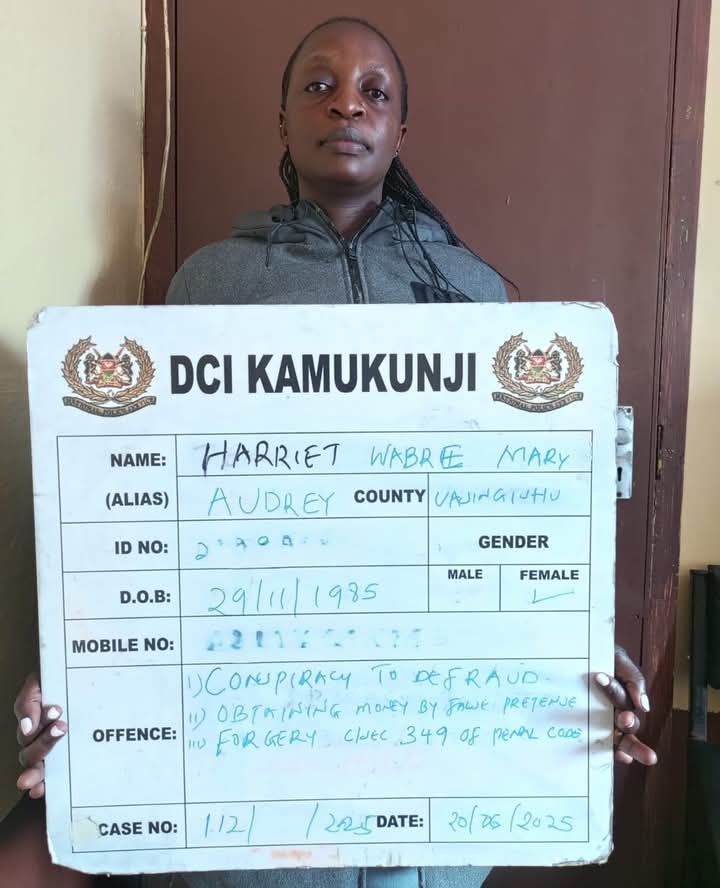 DCI KAMUKUNJI
NAME: HARRIET WABRE MARY
(ALIAS) AUDREY COUNTY UASINGISHU
ID NO:
GENDER
MALE FEMALE ✓
D.O.B: 29/11/1985
MOBILE NO:
OFFENCE: i) CONSPIRACY TO DEFRAUD.
ii) OBTAINING MONEY BY FALSE PRETENSE
iii) FORGERY C/SEC 349 OF PENAL CODE
CASE NO: 112/ /2025 DATE: 20/05/2025